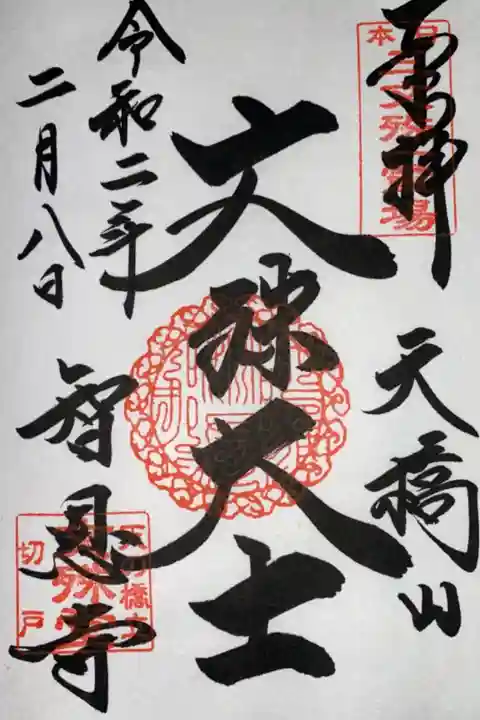 奉拝
日本三文殊霊場
天橋山
文殊大士
令和二年
二月八日
智恩寺
天の橋立
文殊堂
切戸